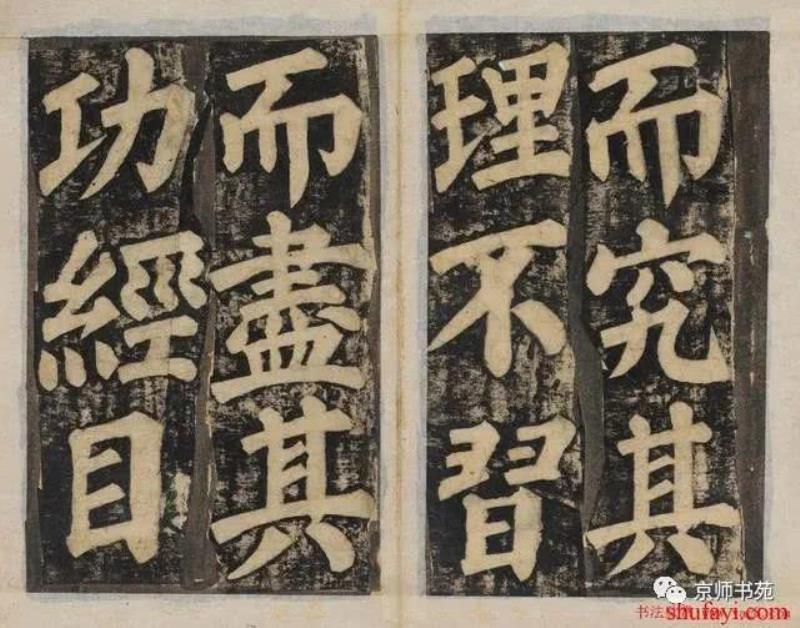 而究其
理不習
而盡其
功經目
京师书苑
shufayi.com